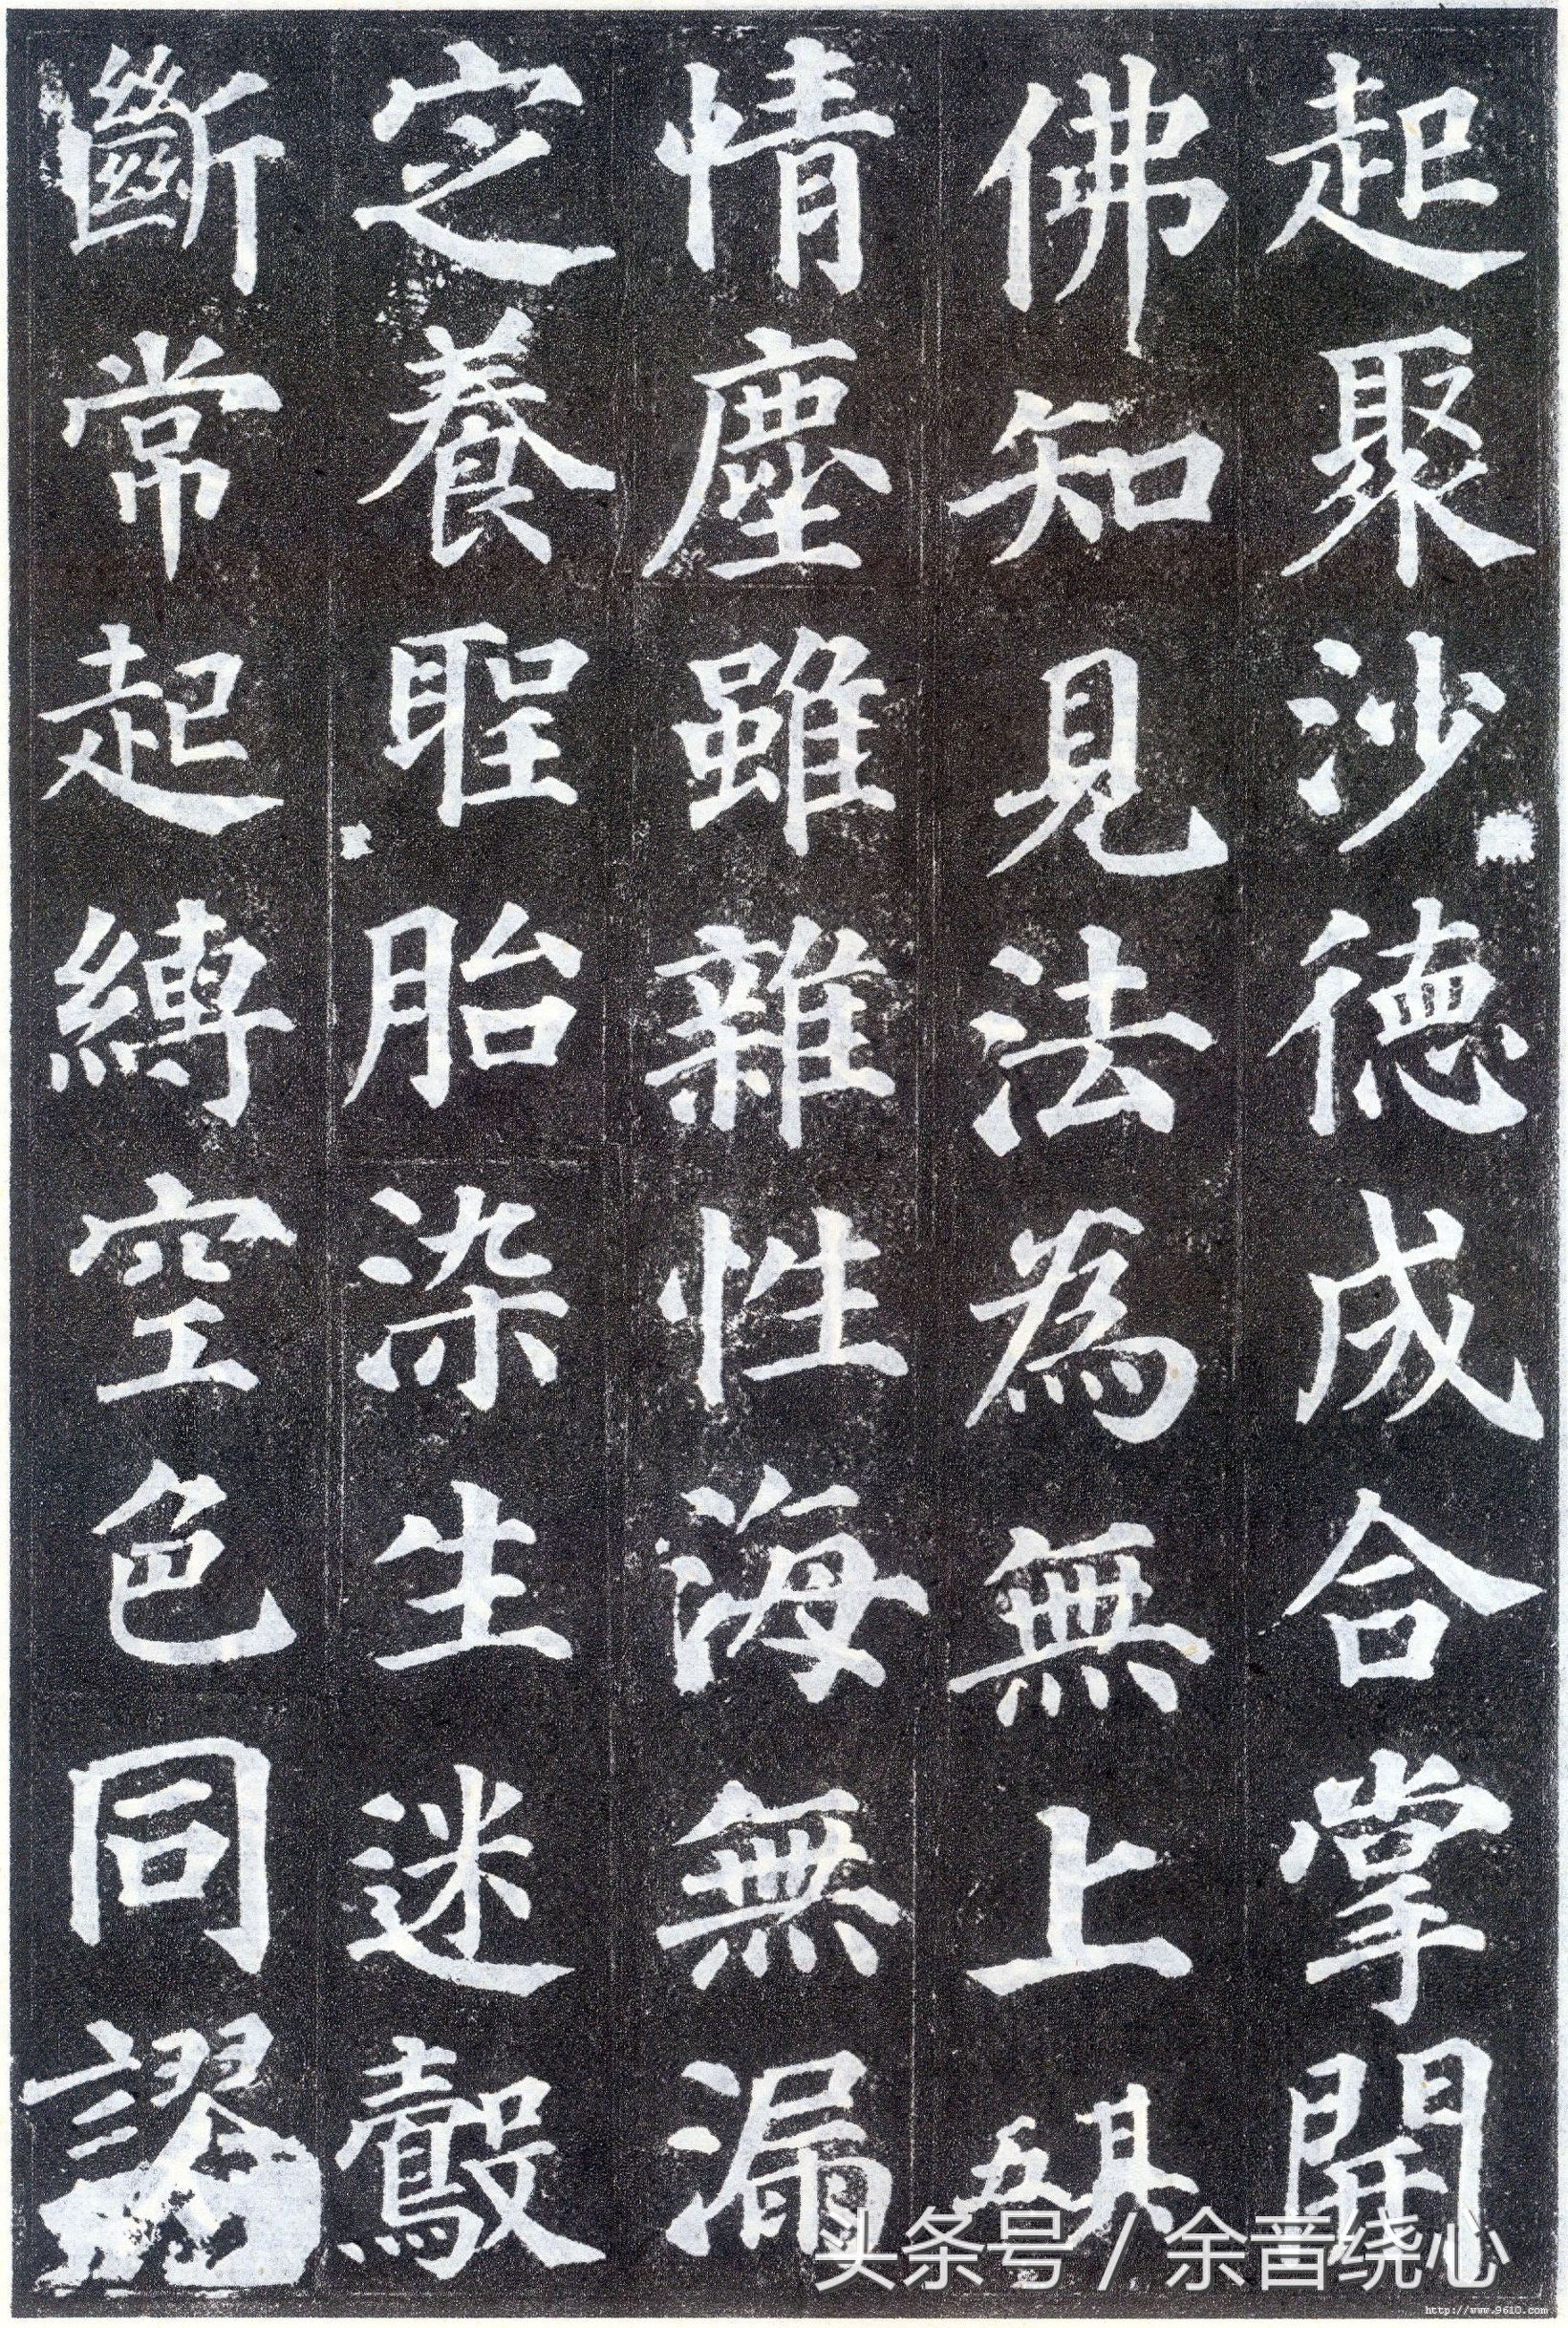 起聚沙德成合掌開
佛知見法為無上其五
情塵雖雜性海無漏
定養聖胎染生迷鷇
斷常起縛空色同謬
头条号 / 余音绕心
http://www.9610.com